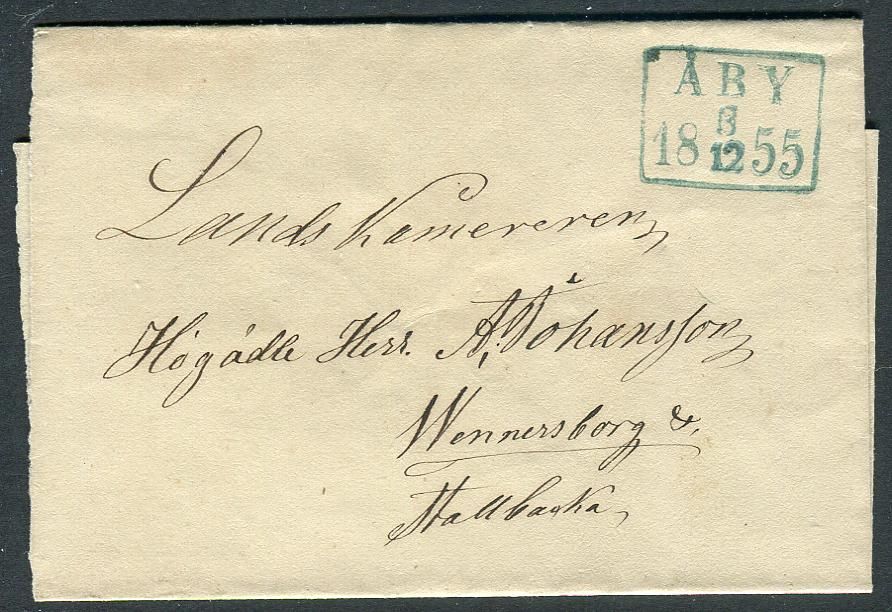 ÅBY
3
18 12 55
Lands Kamereren
Högädle Herr. A. Johansson
Wennersborg &.
Stallbacka